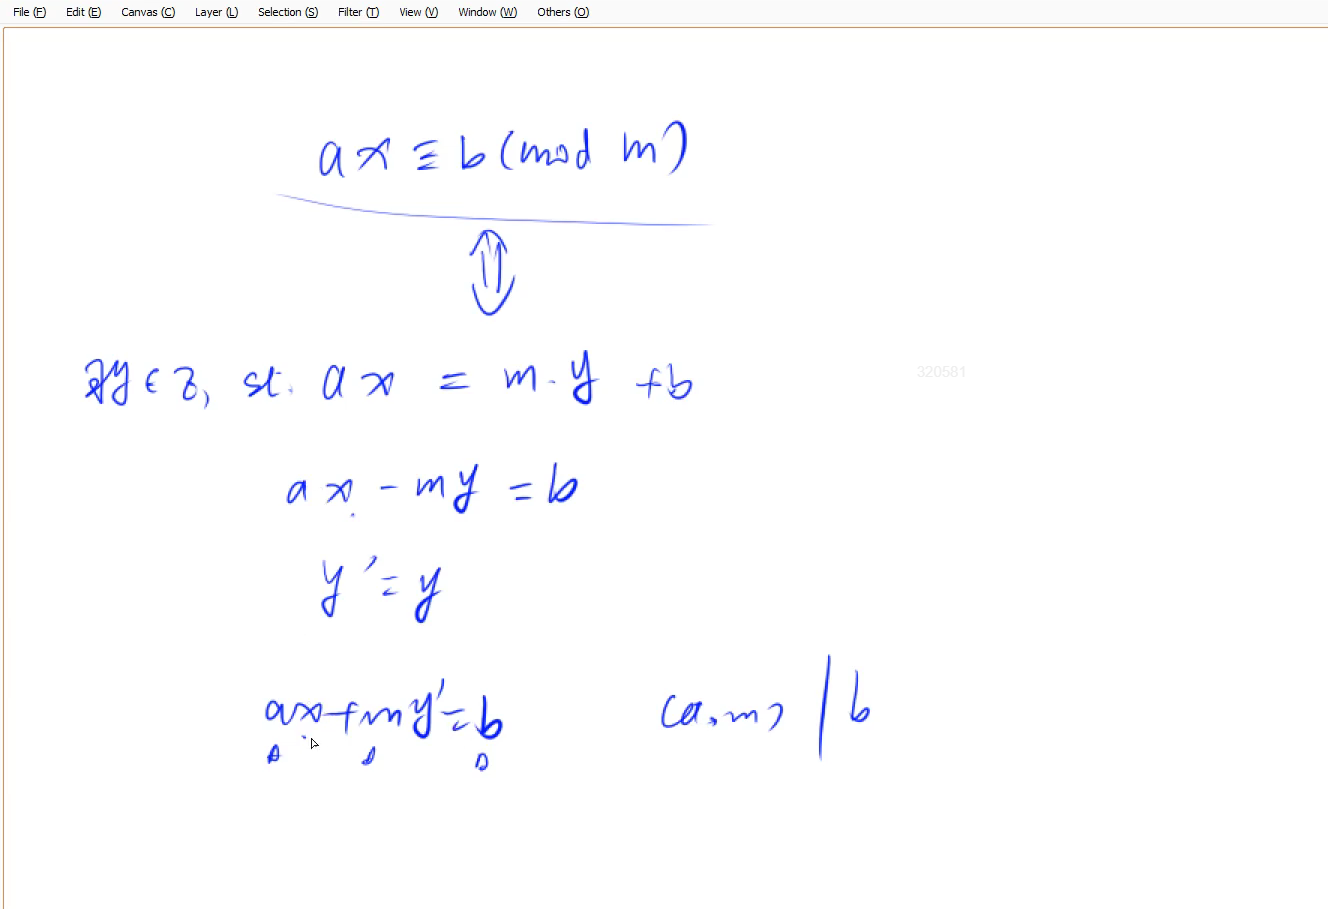 File (F) Edit (E) Canvas (C) Layer (L) Selection (S) Filter (T) View (V) Window (W) Others (O)
ax ≡ b (mod m)
⇕
∃y ∈ Z, st. ax = m·y + b
320581
ax - my = b
y' = y
ax + my' = b
(a,m) | b